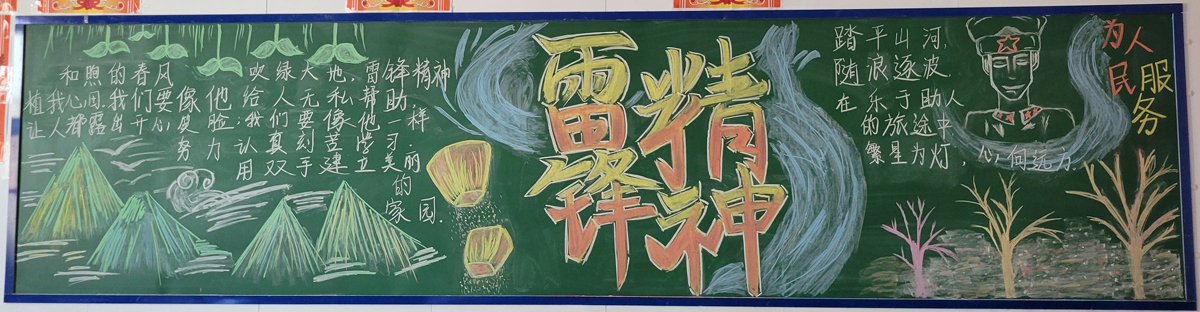 和煦的春风 吹绿大地,雷锋精神
植我心间.我们要像他给人无私帮助,
让人都露出开心笑脸.我们要像他一样
努力认真刻苦学习.
用双手建立美丽
的
家园.
雷锋
精神
踏平山河,
随浪逐波,
在乐于助人
的旅途中
繁星为灯,心向远方.
为人民
服务